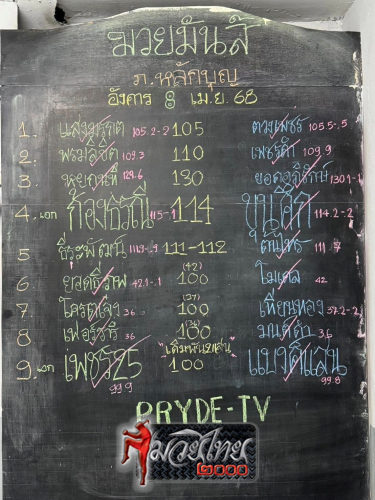 มวยมันส์
ภ.หลักบุญ
อังคาร 8 เม.ย. 68
1. แสงมรกต 105.2-2 105 ดวงเพชร 105.5-.5
2. พรมลิขิต 109.3 110 เพชรดำ 109.9
3. 129.6 130 ยอดอภิรักษ์ 130.1-1
4. เอก ก้องธรณี 115-1 114 ขุนศึก 114.2-2
5 ธีระพัฒน์ 111-112 111.7
6 42.1-.1 (42) 100 โมเดล 42
7. 36 (37) 100 เทียนทอง 37.2-2
8 เฟอร์รารี่ 36 (36) 100 มนต์ดำ 36
9. เอก เพชร25 99.9 "เดิมพันแสน" 100 แบงค์แสน 99.8
PRYDE-TV
มวยไทย
๒๐๐๐